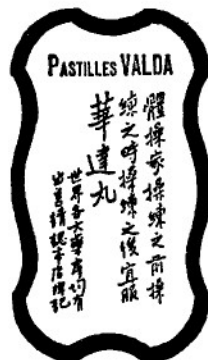 PASTILLES VALDA
體操家操練之前操
練之時操練之後宜服
華達丸
世界各大藥房均有
出售請認本店牌記